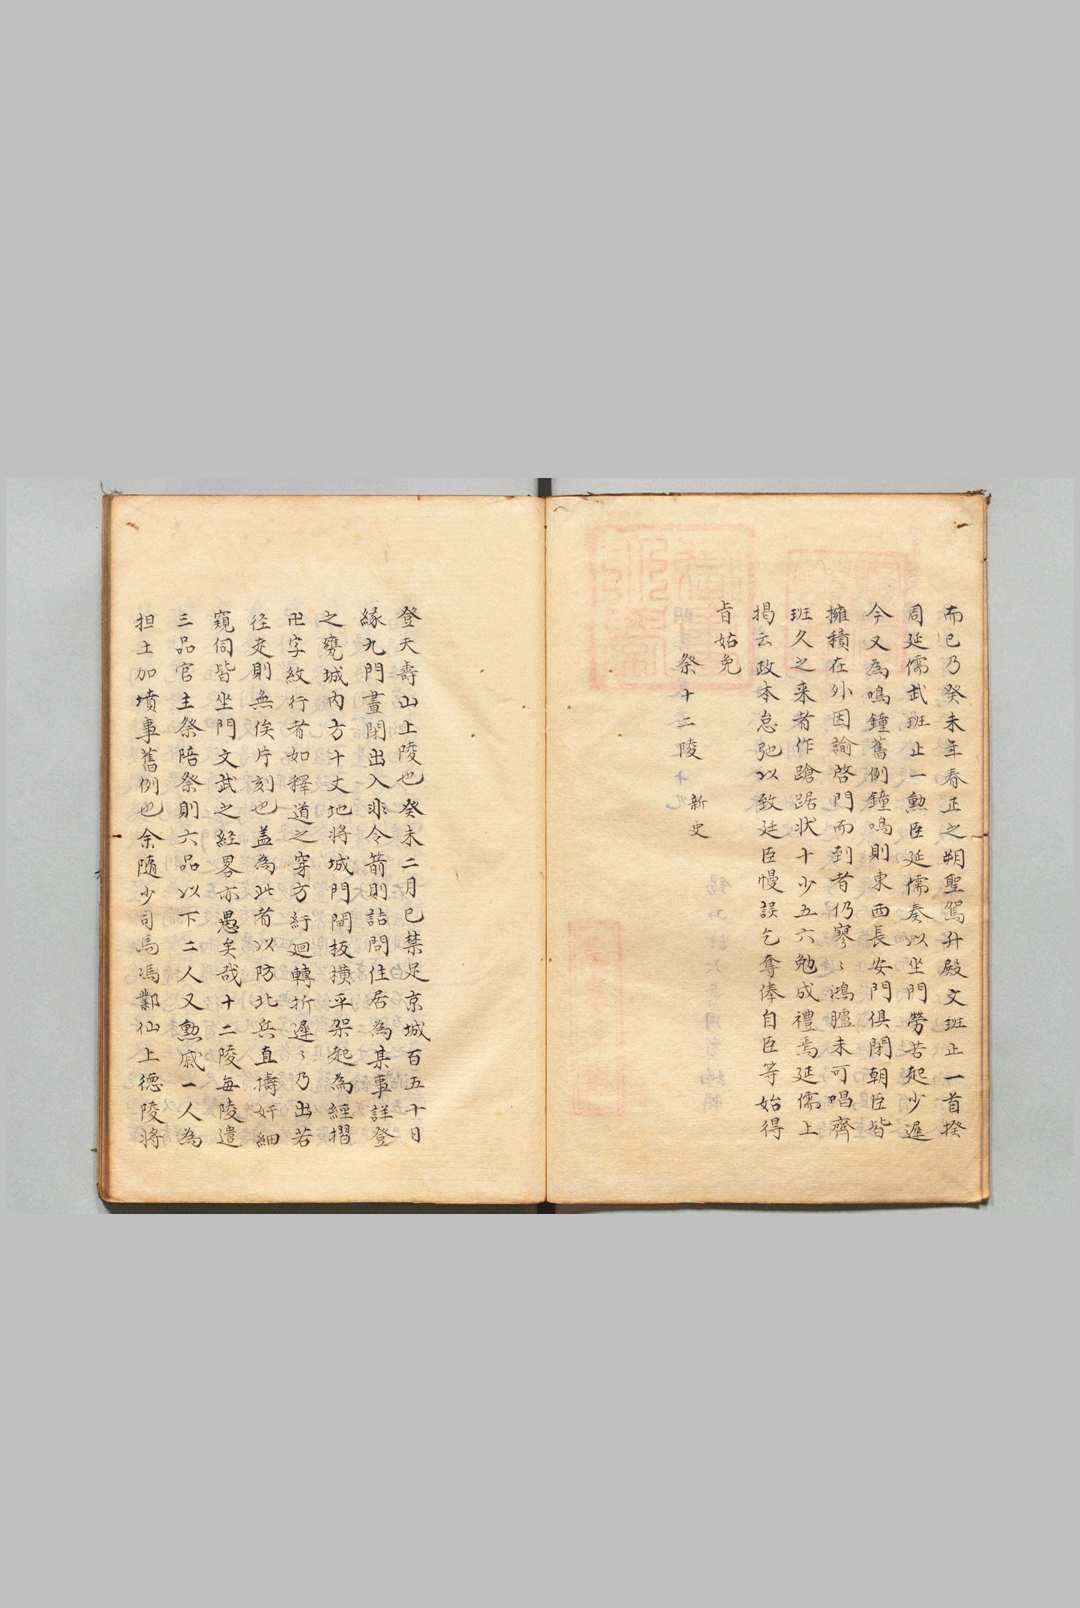 而已乃癸未年春正之朔聖駕升殿文班止一首揆
周延儒武班止一勲臣延儒奏以坐門勞苦起少遲
今又為鳴鐘舊例鐘鳴則東西長安門俱閉朝臣皆
擁積在外因諭啓門而到者仍寥〻鴻臚未可唱齊
班久之来者作蹌踞状十少五六勉成禮焉延儒上
揭云政本怠弛以致廷臣慢誤乞奪俸自臣等始得
旨姑免
祭十二陵 新史
登天壽山上陵也癸未二月已禁足京城百五十日
緣九門晝閉出入非令箭則詰問住居為某事詳登
之甕城內方十丈地將城門閘扳横平架起為經摺
卍字紋行者如釋道之穿方紆迴轉折遲〻乃出若
径走則無俟片刻也盖為此者以防北兵直擣奸細
窺伺皆坐門文武之経畧亦愚矣哉十二陵每陵遣
三品官主祭陪祭則六品以下二人又勲戚一人為
担土加墳事舊例也余隨少司馬馮鄴仙上德陵將